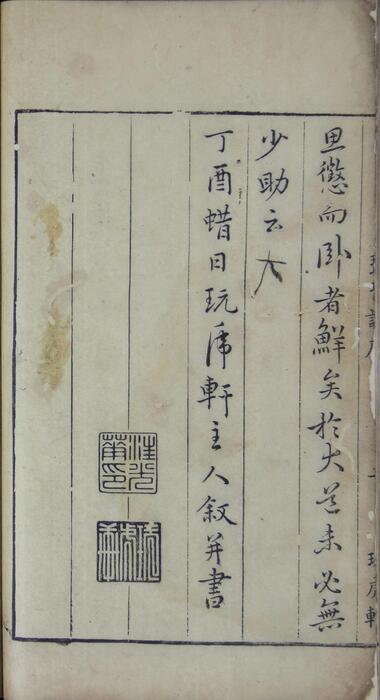 思懲而卧者鮮矣於大道未必無
少助云
丁酉蜡日玩虎軒主人叙并書
玩虎軒